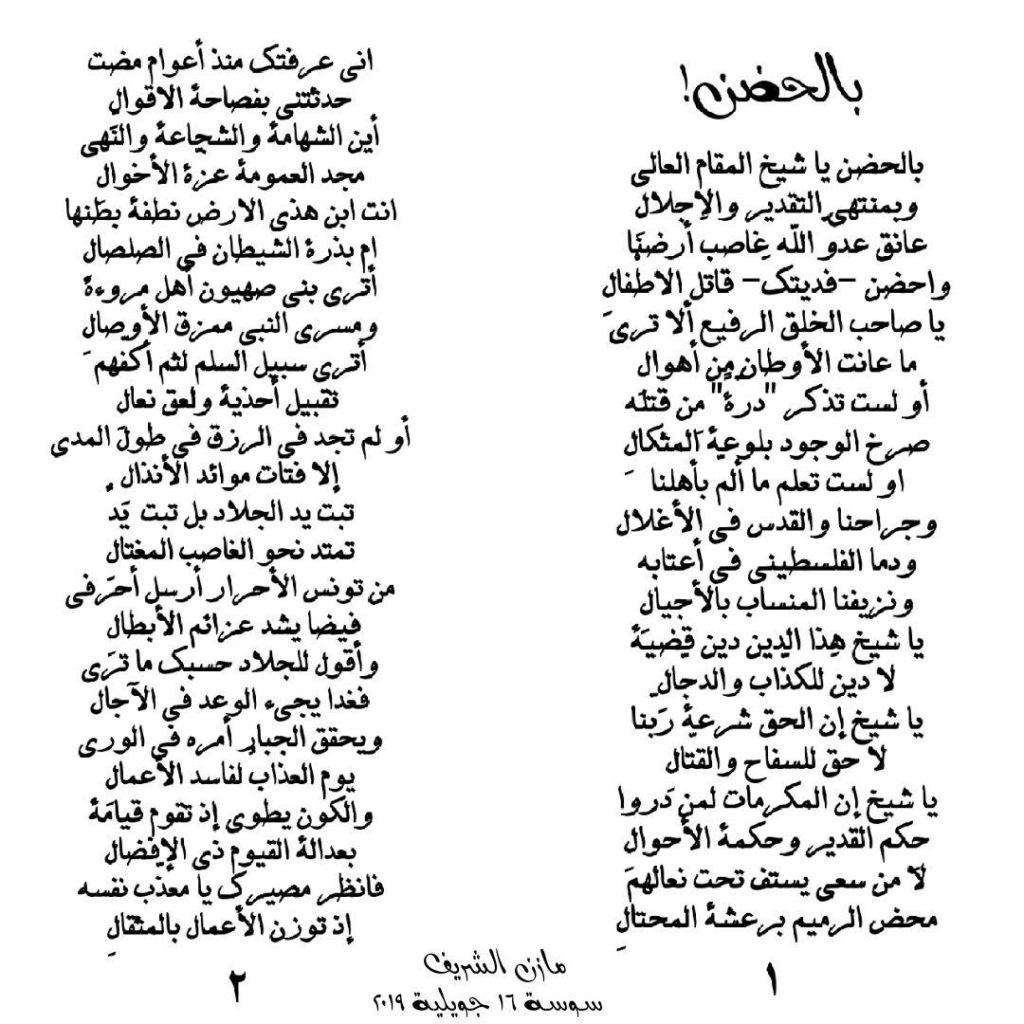 بالحضن!
بالحضن يا شيخ المقام العالى
وبمنتهى التقدير والإجلال
عانق عدوَّ اللّه غاصب أرضنَا
واحضن –فديتك– قاتل الاطفال
يا صاحب الخلق الرفيع ألا ترىَ
ما عانت الأوطان من أهوال
أو لست تذكر "درةً" من قتلَه
صرخ الوجود بلوعة المثكالِ
او لست تعلم ما ألم بأهلنا
وجراحنا والقدس فى الأغلال
ودما الفلسطينى فى أعتابه
ونزيفنا المنساب بالأجيال
يا شيخ هذا الدين دين قضيَة
لا دين للكذاب والدجالِ
يا شيخ إن الحق شرعة رَبنا
لا حق للسفاح والقتال
يا شيخ إن المكرمات لمن دَروا
حكم القدير وحكمة الأحوال
لا من سعى يستف تحت نعالهمَ
محض الرميم برعشة المحتالِ
١
انى عرفتك منذ أعوام مضت
حدثتنى بفصاحة الاقوالِ
أين الشهامة والشجاعة والنَهى
مجد العمومة عزة الأخوال
انت ابن هذى الارض نطفة بطَنها
ام بذرة الشيطان فى الصلصال
أترى بنى صهيون أهل مروءةً
ومسرى النبى ممزق الأوصال
أترى سبيل السلم لثم أكفهمَ
تقبيل أحذية ولعق نعال
أو لم تجد فى الرزق فى طولَ المدى
إلا فتات موائد الأنذالِ
تبت يد الجلاد بل تبت يَد
تمتد نحو الغاصب المغتال
من تونس الأحرار أرسل أحَرفى
فيضا يشد عزائم الأبطال
وأقول للجلاد حسبك ما ترَى
فغدا يجىء الوعد فى الآجال
ويحقق الجبار أمره فى الورى
يوم العذاب لفاسد الأعمال
والكون يطوى إذ تقوم قيامَة
بعدالة القيوم ذى الإفضال
فانظر مصيرك يا معذب نفسه
إذ توزن الأعمال بالمثقالِ
٢
مازن الشريف
سوسة ١٦ جويلية ٢٠١٩